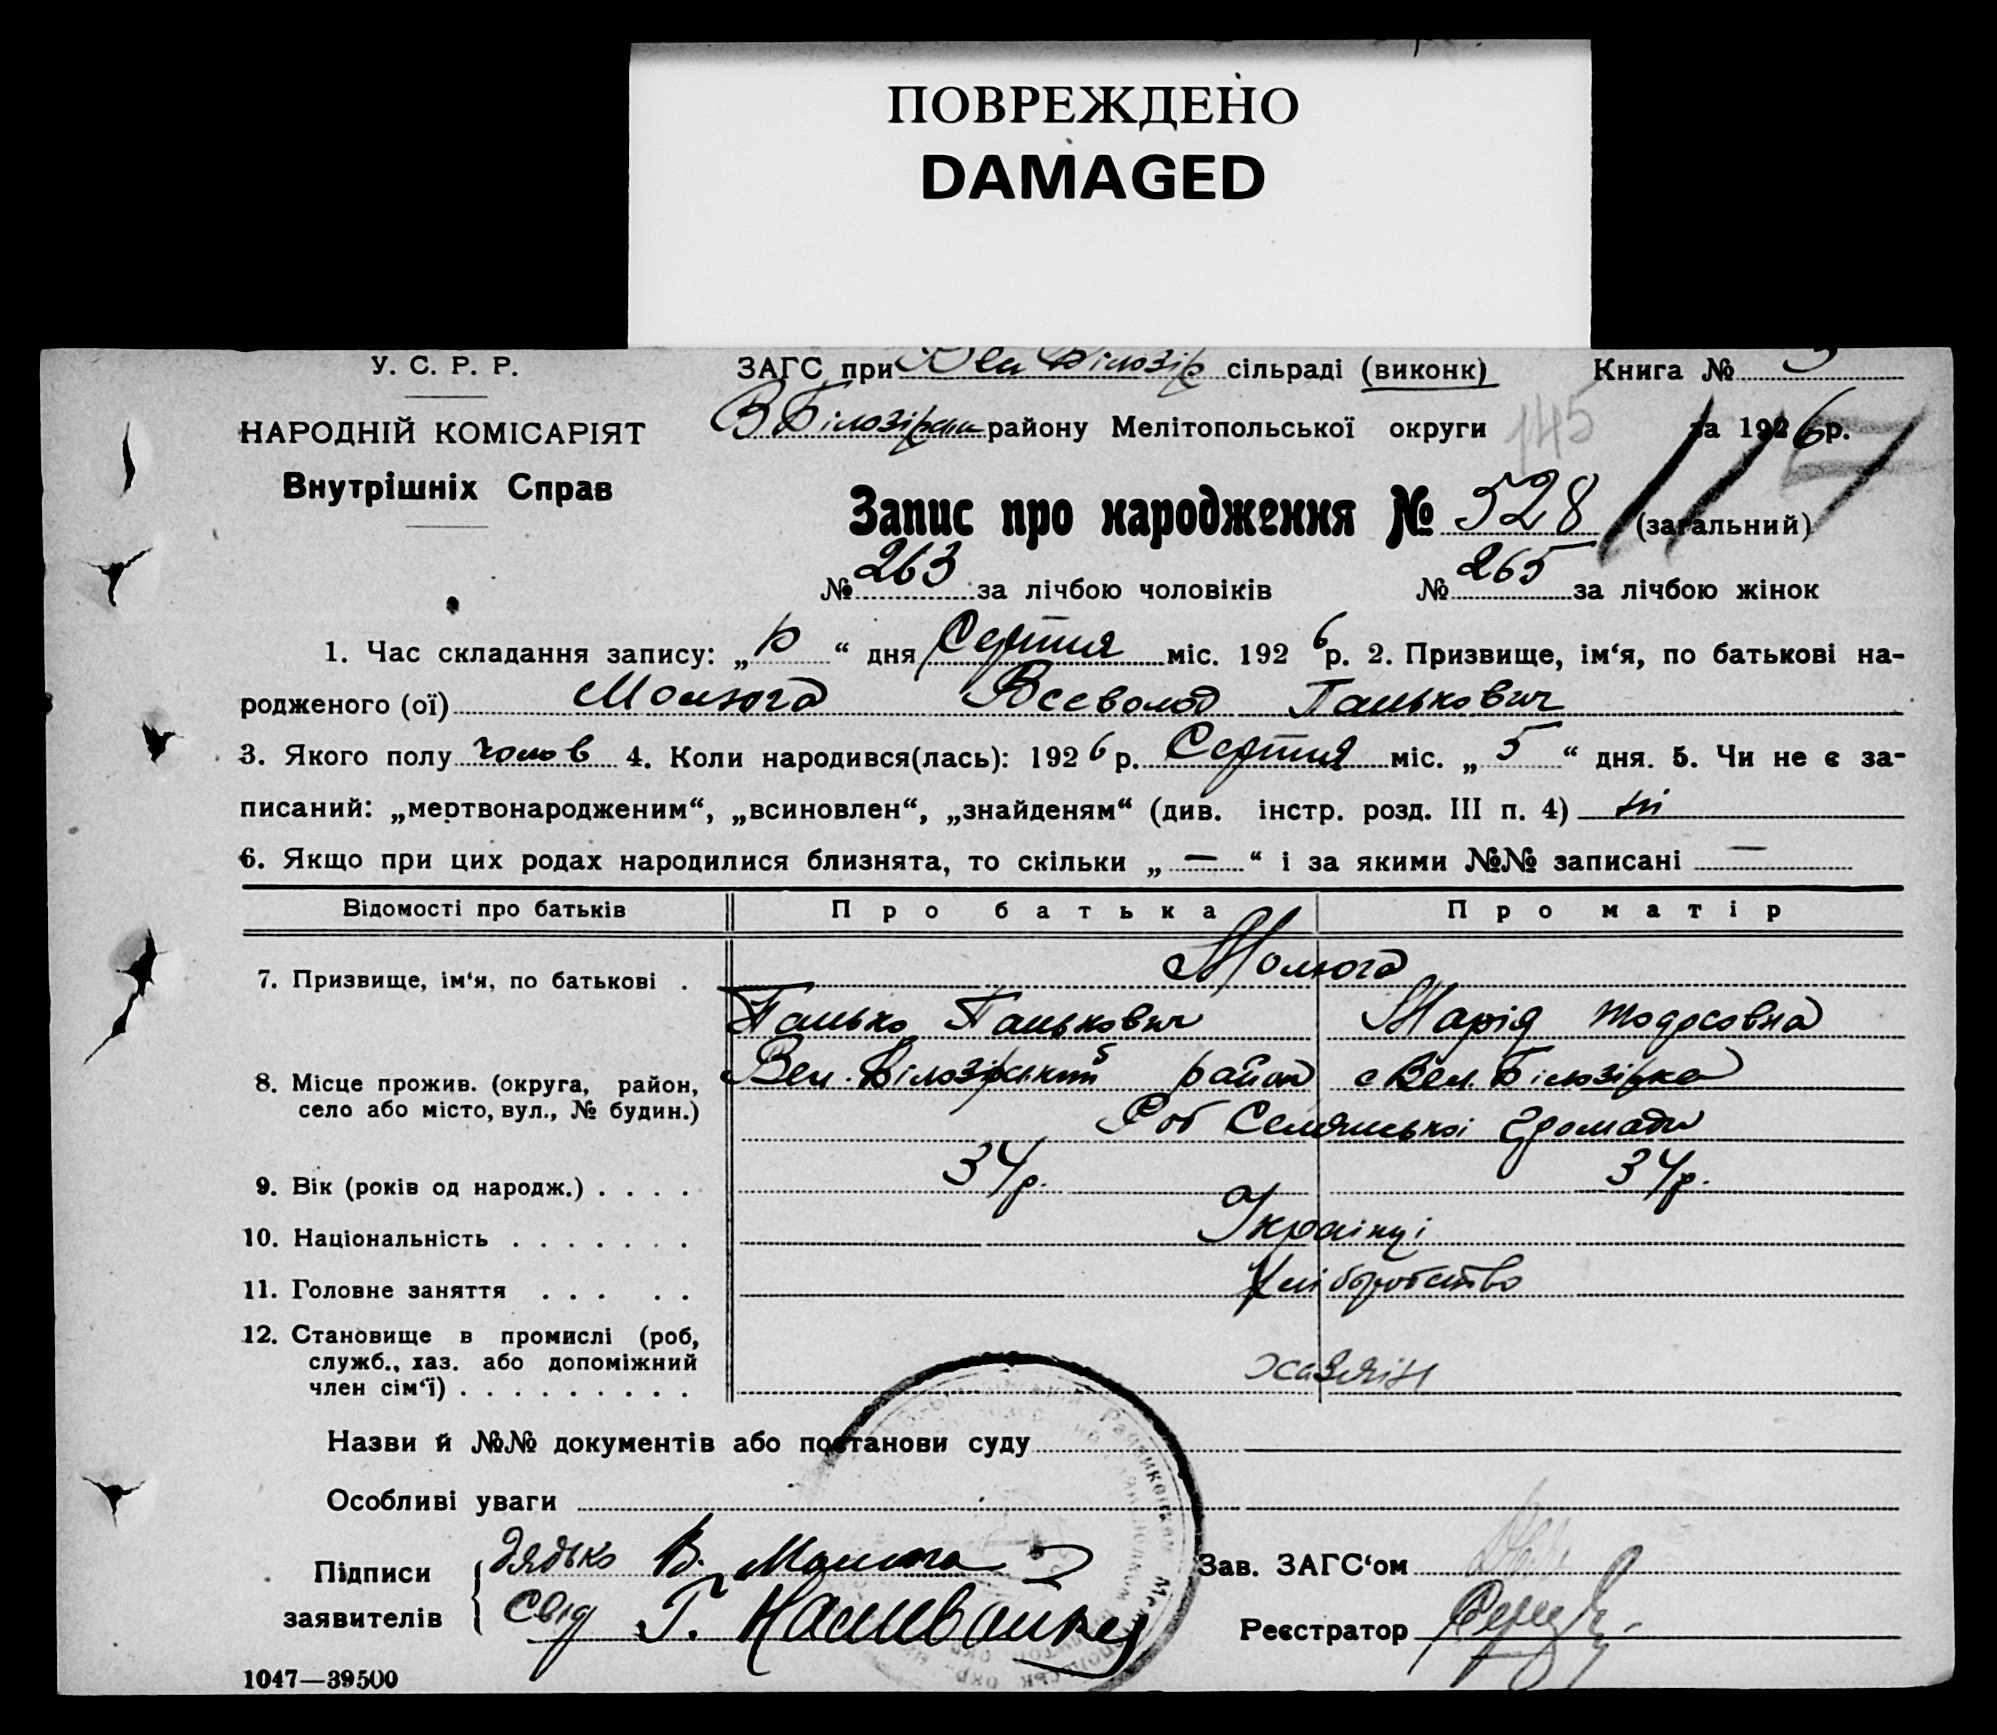 ПОВРЕЖДЕНО
DAMAGED
У. С. Р. Р.
ЗАГС при Вел Білозір сільраді (виконк) Книга № 3
НАРОДНІЙ КОМІСАРІЯТ
В Білозірськ району Мелітопольської округи 145 за 1926 р.
Внутрішніх Справ
117
Запис про народження № 528 (загальний)
№ 263 за лічбою чоловіків № 265 за лічбою жінок
1. Час складання запису: „10“ дня Серпня міс. 1926 р. 2. Призвище, ім‘я, по батькові на-
родженого (ої) Молюга Всеволод Панькович
3. Якого полу чолов 4. Коли народився(лась): 1926 р. Серпня міс. „5“ дня. 5. Чи не є за-
писаний: „мертвонародженим“, „всиновлен“, „знайденям“ (див. інстр. розд. III п. 4) ні
6. Якщо при цих родах народилися близнята, то скільки „—“ і за якими №№ записані —
Відомості про батьків Про батька Про матір
Молюга
7. Призвище, ім‘я, по батькові .
Панько Панькович Марія Тодосовна
8. Місце прожив. (округа, район, Вел. Білозірський район с Вел. Білозірка
село або місто, вул., № будин.) Роб Селянської громади
9. Вік (років од народж.) . . . . 34 р. 34 р.
10. Національність . . . . . . . Українці
11. Головне заняття . . . . . Хліборобство
12. Становище в промислі (роб,
служб., хаз. або допоміжний
член сім‘ї) . . . . . . . . . . хазяїн
Назви й №№ документів або постанови суду
Особливі уваги
Підписи дядько В. Молюга Зав. ЗАГС‘ом
заявителів Свід Г. Наливайко Реєстратор
1047—39500